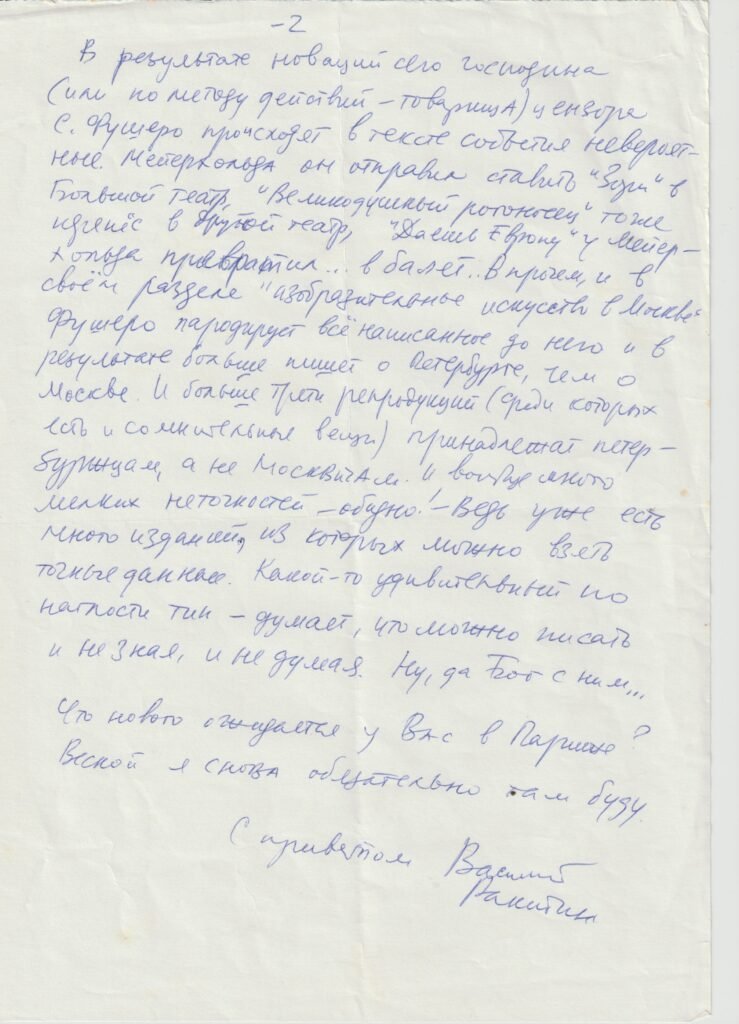 -2
В результате новаций сего господина
(или по методу действий – товарищА) цензора
С. Фушеро происходят в тексте события невероят-
ные. Мейерхольда он отправил ставить "Зори" в
Большой театр, "Великодушный рогоносец" тоже
идёт в другой театр, "Даёшь Европу" у Мейер-
хольда превратил... в балет. Впрочем, и в
своём разделе "изобразительные искусство в Москве"
Фушеро пародирует всё написанное до него и в
результате больше пишет о Петербурге, чем о
Москве. И больше трети репродукций (среди которых
есть и сомнительные вещи) принадлежат петер-
буржцам, а не МосквичАм. И вообще много
мелких неточностей – обидно! – Ведь уже есть
много изданий, из которых можно взять
точные данные. Какой-то удивительный по
наглости тип – думает, что можно писать
и не зная, и не думая. Ну, да Бог с ним...
Что нового ожидается у Вас в Париже?
Весной я снова обязательно там буду.
С приветом Василий
Ракитин